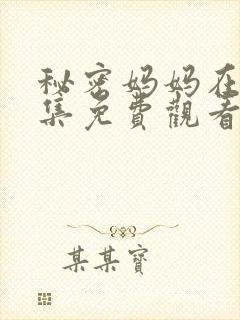 秘密妈妈在
集免費觀看
某某寶